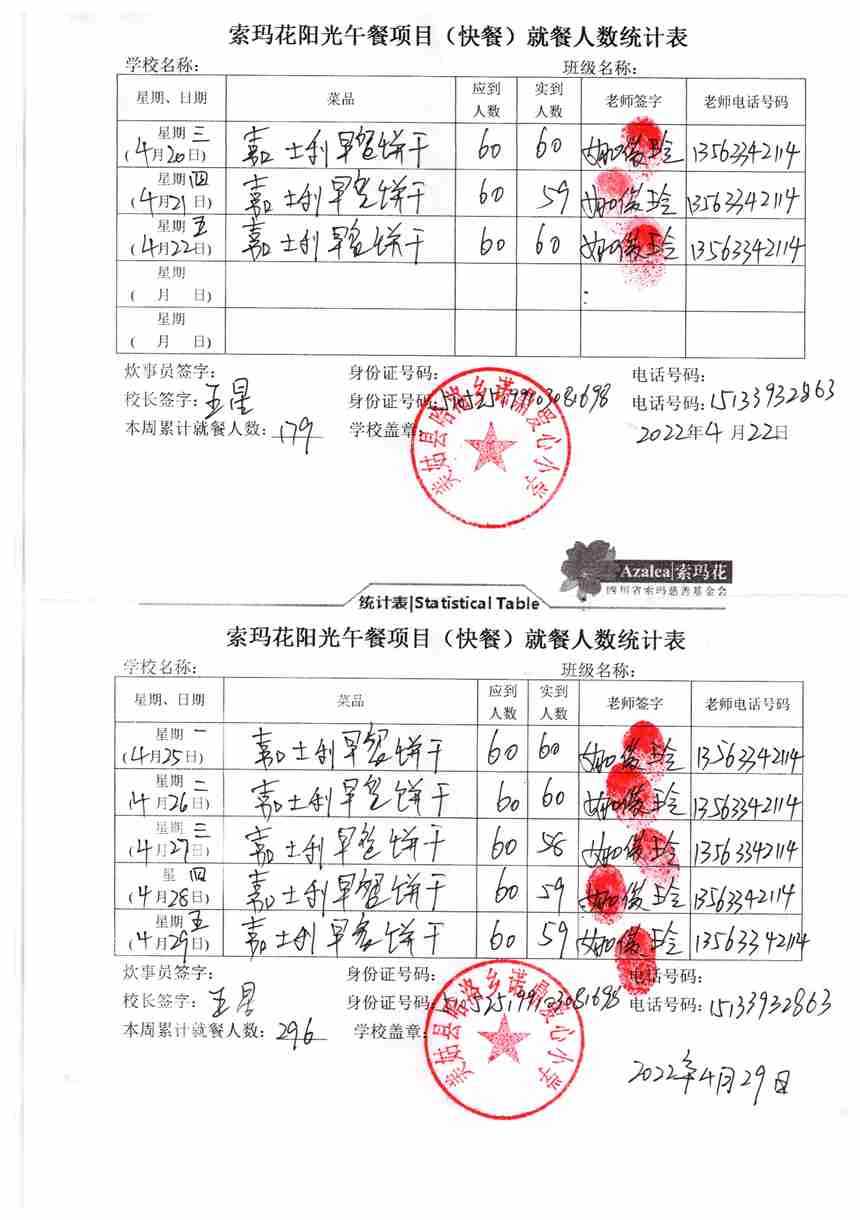 索玛花阳光午餐项目（快餐）就餐人数统计表
学校名称： 班级名称：
星期、日期 菜品 应到人数 实到人数 老师签字 老师电话号码
星期三（4月20日） 嘉士利早餐饼干 60 60 13563342114
星期四（4月21日） 嘉士利早餐饼干 60 59 13563342114
星期五（4月22日） 嘉士利早餐饼干 60 60 13563342114
星期（ 月 日）
星期（ 月 日）
炊事员签字： 身份证号码： 电话号码：
校长签字：王星 身份证号码: 电话号码:15133932863
本周累计就餐人数：179 学校盖章 2022年4月22日
美姑县哈洛乡诺 爱心小学
Azalea|索玛花
四川省索玛慈善基金会
统计表|Statistical Table
索玛花阳光午餐项目（快餐）就餐人数统计表
学校名称： 班级名称：
星期、日期 菜品 应到人数 实到人数 老师签字 老师电话号码
星期一（4月25日） 嘉士利早餐饼干 60 60 13563342114
星期二（4月26日） 嘉士利早餐饼干 60 60 13563342114
星期三（4月27日） 嘉士利早餐饼干 60 58 13563342114
星 四（4月28日） 嘉士利早餐饼干 60 59 13563342114
星期五（4月29日） 嘉士利早餐饼干 60 59 13563342114
炊事员签字： 身份证号码： 电话号码：
校长签字：王星 身份证号码 电话号码：15133932863
本周累计就餐人数：296 学校盖章
美姑县哈洛乡诺 爱心小学
2022年4月29日